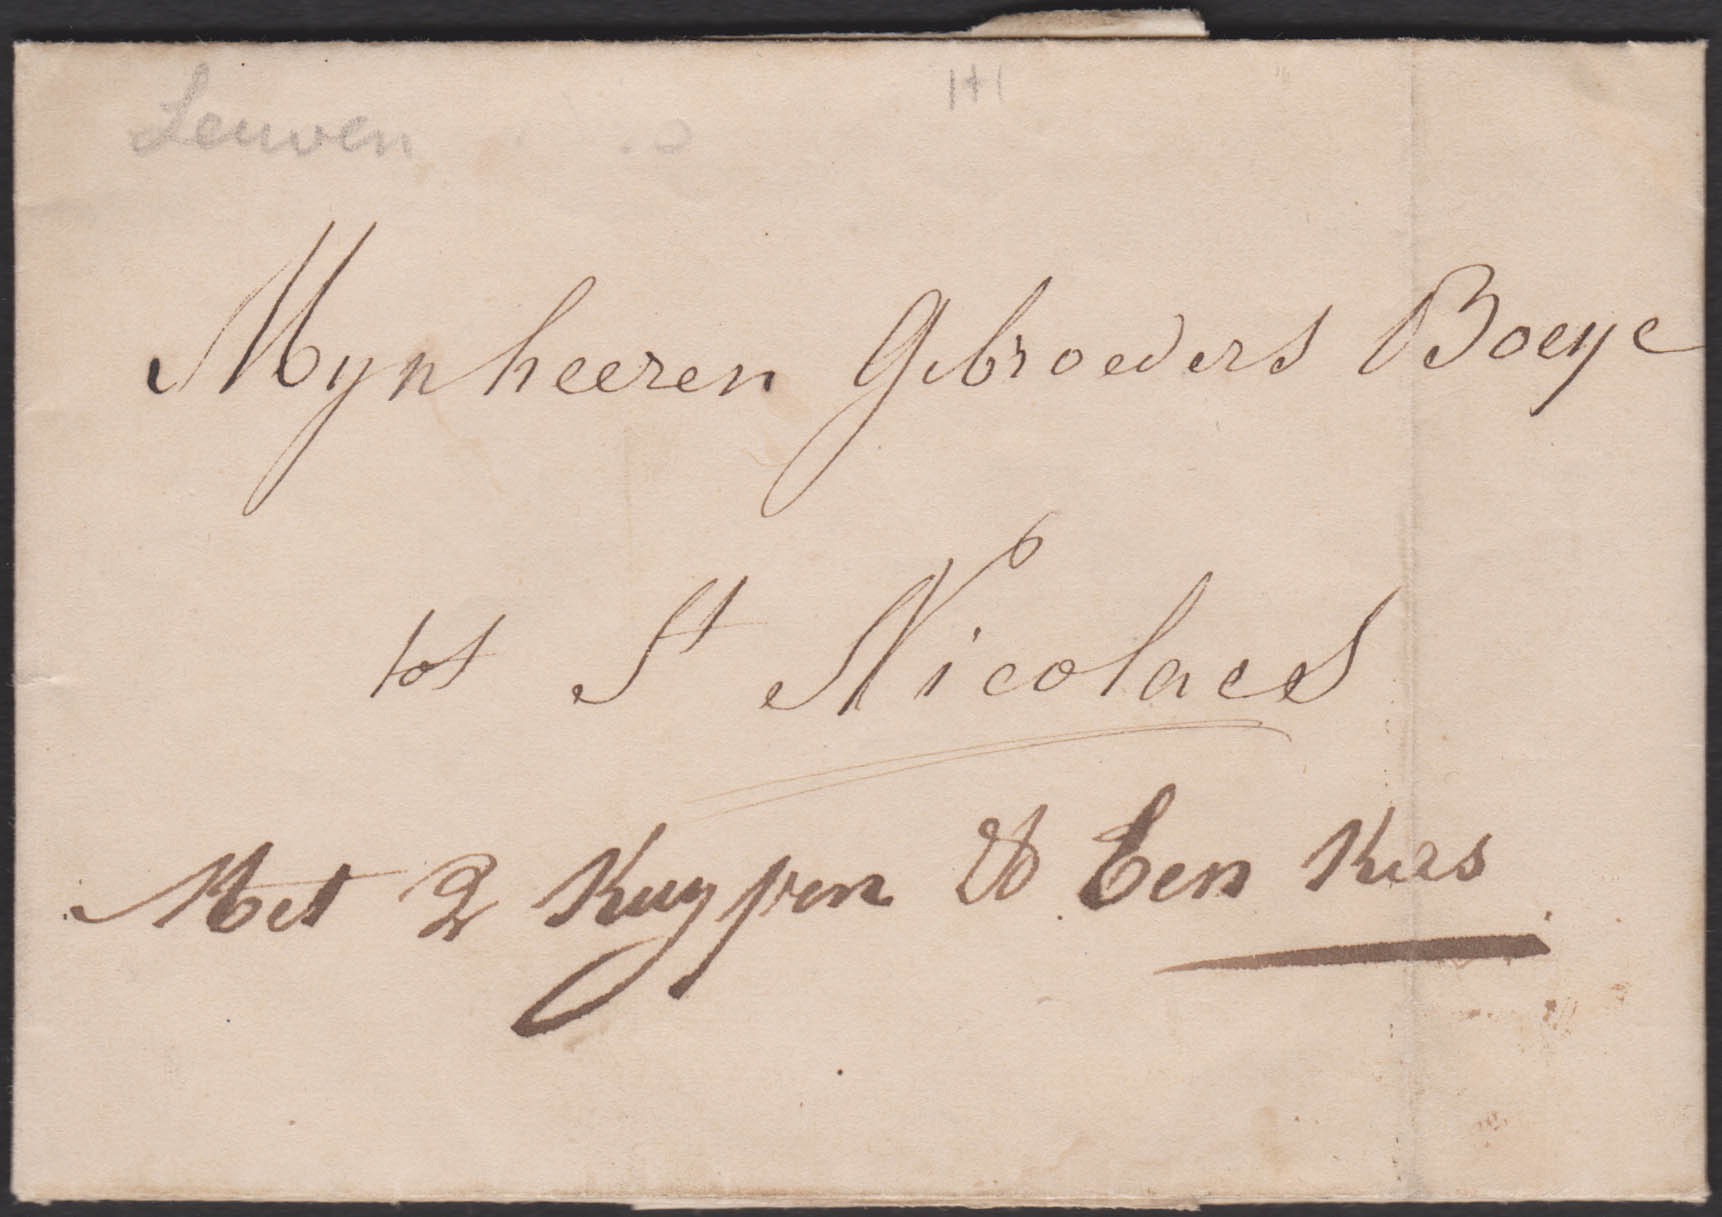 Leuven
Mynheeren Gebroeders Boeye
tot St Nicolaes
Met 2 Kuypen & Een Kies